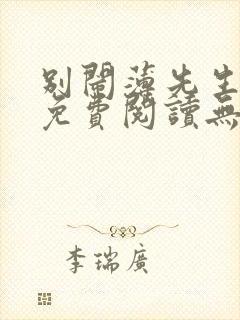 別鬧薄先生
免費閱讀無
李瑞廣